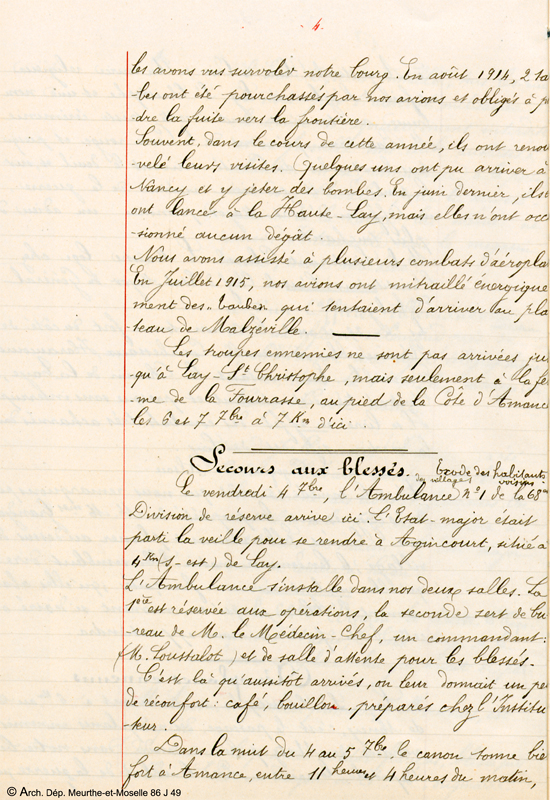 4.
les avons vus survoler notre bourg. En août 1914, 2 Ta
-bes ont été pourchassés par nos avions et obligés à p
dre la fuite vers la frontière.
Souvent, dans le cours de cette année, ils ont renou
velé leurs visites. Quelques uns ont pu arriver à
Nancy et y jeter des bombes. En juin dernier, ils
ont lancé à la Haute-Lay, mais elles n'ont occ
sionné aucun dégât.
Nous avons assisté à plusieurs combats d'aéropla
En Juillet 1915, nos avions ont mitraillé énergique
ment des Tauben qui tentaient d'arriver au pla
teau de Malzéville.
Les troupes ennemies ne sont pas arrivées ju
qu'à Lay-St Christophe, mais seulement à la fe
me de la Fourrasse, au pied de la Côte d'Amance
les 6 et 7 7bre à 7 Km d'ici.
Secours aux blessés. Exode des habitants
des villages voisins
Le vendredi 4 7bre, l'Ambulance n°1 de la 68me
Division de réserve arrive ici. L'Etat-major était
parti la veille pour se rendre à Agincourt, situé à
4 Km (s-est) de Lay.
L'Ambulance s'installe dans nos deux salles. La
1ère est réservée aux opérations, la seconde sert de bu
reau de M. le Médecin-Chef, un commandant:
(M. Loustalot) et de salle d'attente pour les blessés-
C'est là qu'aussitôt arrivés, on leur donnait un pe
de réconfort: café, bouillon, préparés chez l'Institu
teur.
Dans la nuit du 4 au 5 7bre, le canon tonne bie
fort à Amance, entre 11 heures et 4 heures du matin,
© Arch. Dép. Meurthe-et-Moselle 86 J 49